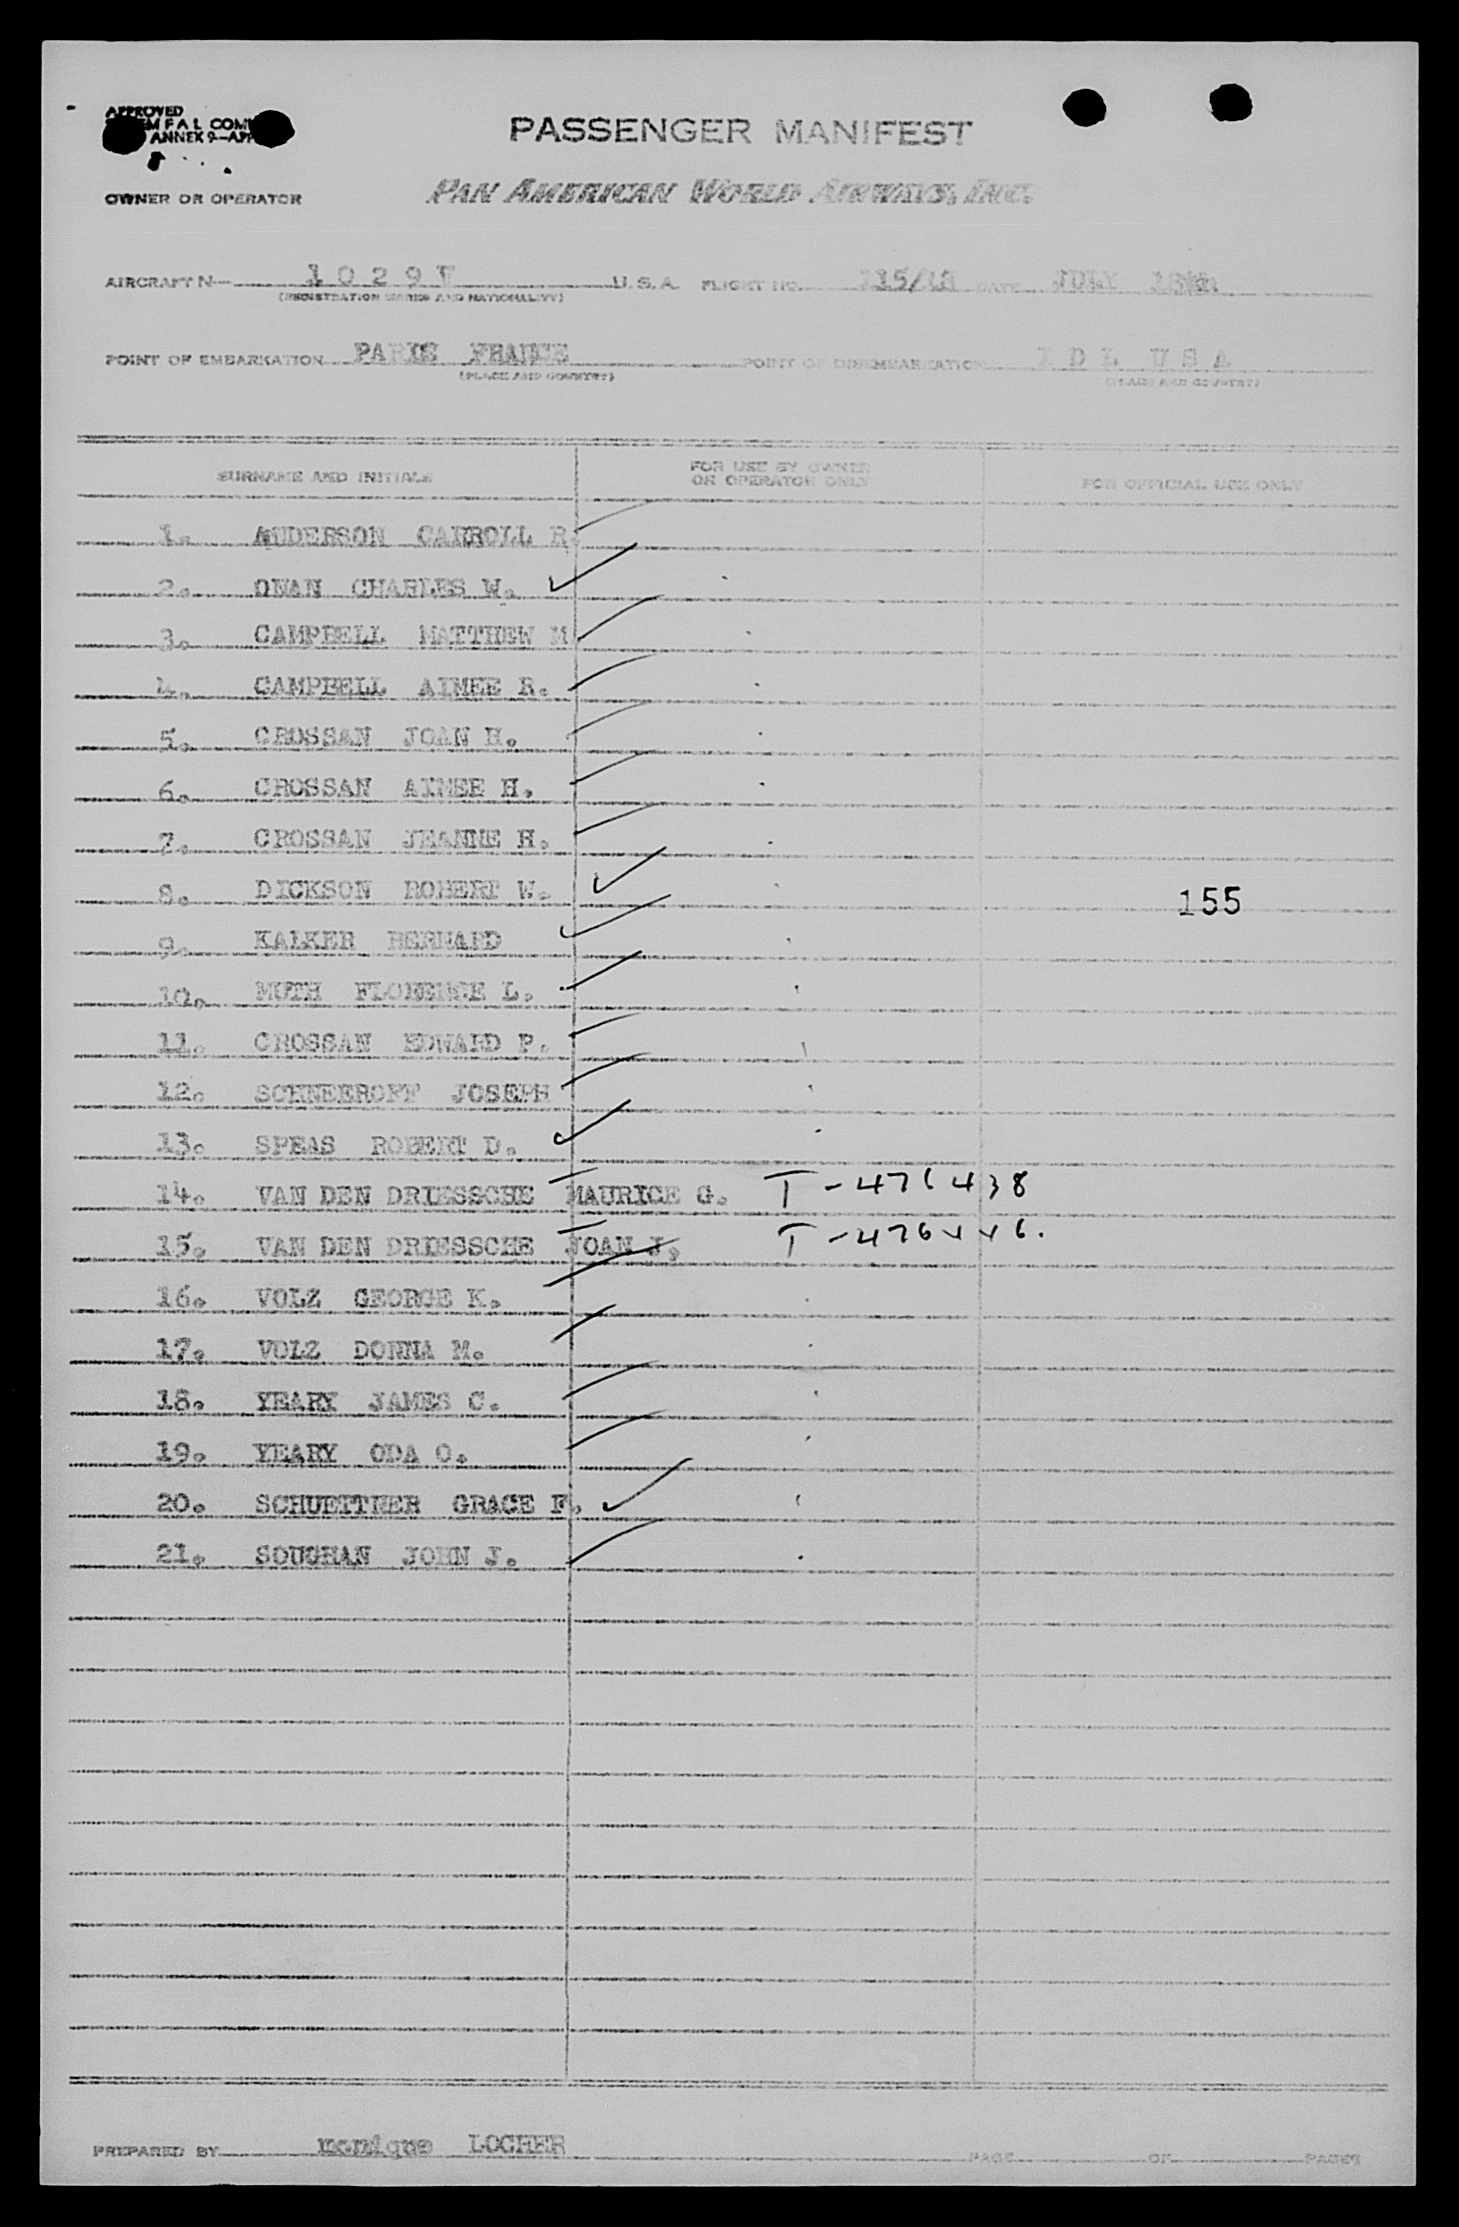 APPROVED
F A L COM
ANNEX 9-APP
PASSENGER MANIFEST
OWNER OR OPERATOR PAN AMERICAN WORLD AIRWAYS, INC.
AIRCRAFT N 1 0 2 9 V U. S. A. FLIGHT NO. 115/18 DATE JULY
(REGISTRATION MARKS AND NATIONALITY)
POINT OF EMBARKATION PARIS FRANCE POINT OF DISEMBARKATION I D L U S A
(PLACE AND COUNTRY) (PLACE AND COUNTRY)
SURNAME AND INITIALS FOR USE BY OWNER OR OPERATOR ONLY FOR OFFICIAL USE ONLY
1. ANDERSON CARROLL R.
2. ONAN CHARLES W.
3. CAMPBELL MATTHEW M
4. CAMPBELL AIMEE R.
5. CROSSAN JOAN H.
6. CROSSAN AIMEE H.
7. CROSSAN JEANNE H.
8. DICKSON ROBERT W. 155
9. KALKER BERNARD
10. MUTH FLORENCE L.
11. CROSSAN EDWARD P.
12. SCHNEEROFF JOSEPH
13. SPEAS ROBERT D.
14. VAN DEN DRIESSCHE MAURICE G. T-476438
15. VAN DEN DRIESSCHE JOAN J. T-476446.
16. VOLZ GEORGE K.
17. VOLZ DONNA M.
18. YEARY JAMES C.
19. YEARY ODA O.
20. SCHUETTNER GRACE F.
21. SOUGHAN JOHN J.
PREPARED BY monique LOCHER PAGE OF PAGES